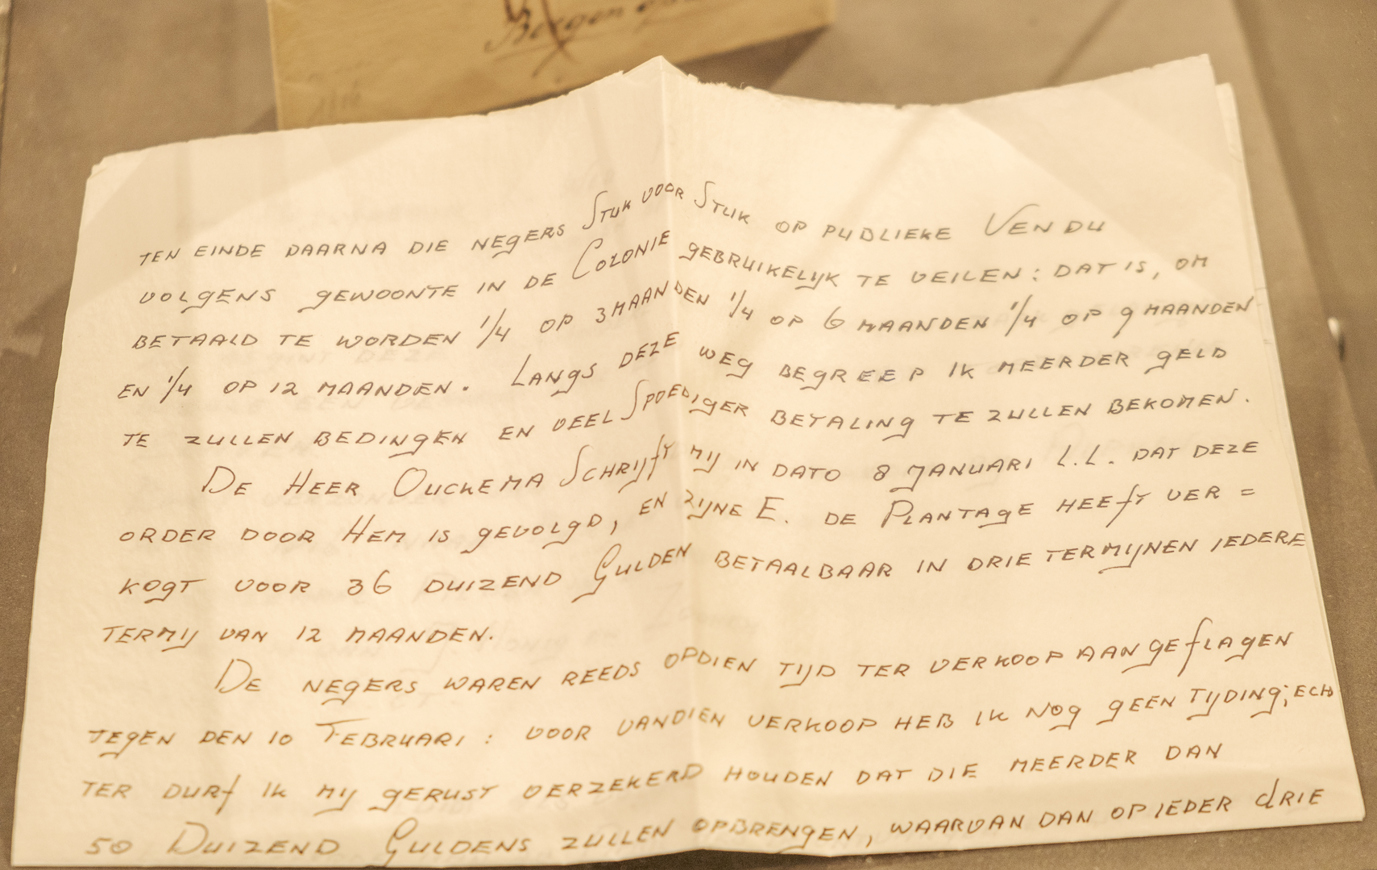 Bergen
TEN EINDE DAARNA DIE NEGERS STUK VOOR STUK OP PUBLIEKE VENDU
VOLGENS GEWOONTE IN DE COLONIE GEBRUIKELIJK TE VEILEN: DAT IS, OM
BETAALD TE WORDEN 1/4 OP 3 MAANDEN 1/4 OP 6 MAANDEN 1/4 OP 9 MAANDEN
EN 1/4 OP 12 MAANDEN. LANGS DEZE WEG BEGREEP IK MEERDER GELD
TE ZULLEN BEDINGEN EN VEEL SPOEDIGER BETALING TE ZULLEN BEKOMEN.
DE HEER OUCKEMA SCHRIJFT MIJ IN DATO 8 JANUARI L.L. DAT DEZE
ORDER DOOR HEM IS GEVOLGD, EN ZIJNE E. DE PLANTAGE HEEFT VER=
KOGT VOOR 36 DUIZEND GULDEN BETAALBAAR IN DRIE TERMIJNEN IEDERE
TERMIJ VAN 12 MAANDEN.
DE NEGERS WAREN REEDS OPDIEN TIJD TER VERKOOP AANGEFLAGEN
TEGEN DEN 10 FEBRUARI: VOOR VANDIEN VERKOOP HEB IK NOG GEEN TIJDING; ECH
TER DURF IK MIJ GERUST VERZEKERD HOUDEN DAT DIE MEERDER DAN
50 DUIZEND GULDENS ZULLEN OPBRENGEN, WAARVAN DAN OP IEDER DRIE